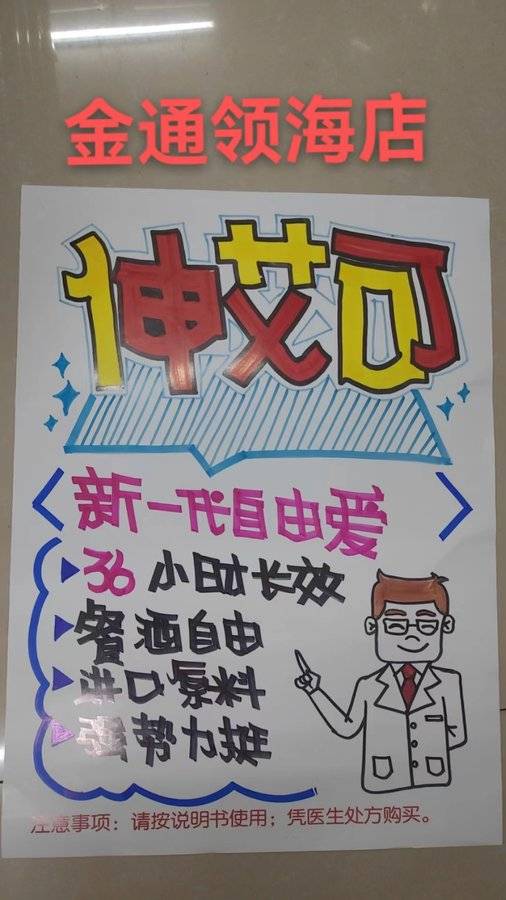 金通领海店
伸艾可
新一代自由爱
36小时长效
餐酒自由
进口原料
强势力挺
注意事项：请按说明书使用；凭医生处方购买。